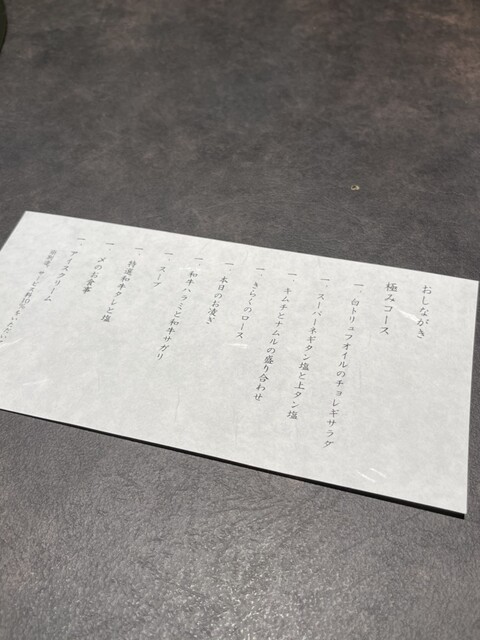 おしながき
極みコース
一、白トリュフオイルのチョレギサラダ
一、スーパーネギタン塩と上タン塩
一、キムチとナムルの盛り合わせ
一、きらくのロース
一、本日のお凌ぎ
一、和牛ハラミと和牛サガリ
一、スープ
一、特選和牛タレと塩
一、〆のお食事
一、アイスクリーム
サービス料10%をいただい